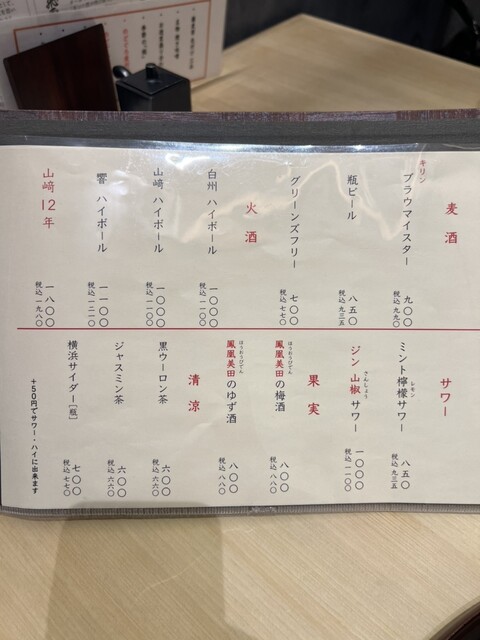 麦酒
キリン
ブラウマイスター
九〇〇
税込 九九〇
瓶ビール
八五〇
税込 九三五
グリーンズフリー
七〇〇
税込 七七〇
火酒
白州 ハイボール
一〇〇〇
税込 一一〇〇
山﨑 ハイボール
一〇〇〇
税込 一一〇〇
響 ハイボール
一一〇〇
税込 一二一〇
山﨑 12年
一八〇〇
税込 一九八〇
サワー
ミント檸檬サワー
レモン
八五〇
税込 九三五
ジン山椒サワー
さんしょう
一〇〇〇
税込 一一〇〇
果実
鳳凰美田の梅酒
ほうおうびでん
八〇〇
税込 八八〇
鳳凰美田のゆず酒
ほうおうびでん
八〇〇
税込 八八〇
清涼
黒ウーロン茶
六〇〇
税込 六六〇
ジャスミン茶
六〇〇
税込 六六〇
横浜サイダー[瓶]
七〇〇
税込 七七〇
+50円でサワー・ハイに出来ます